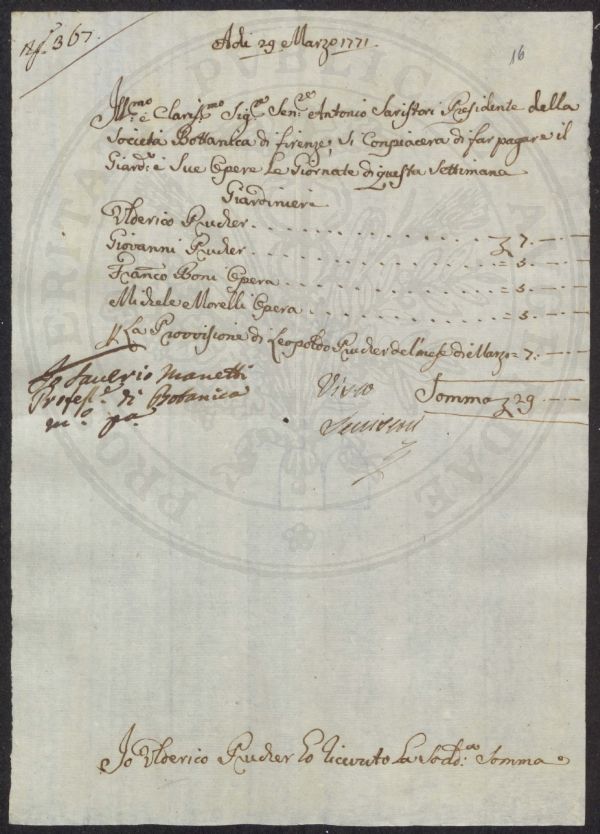 N.º 367.
Adi 29 Marzo 1771.
16
Ill.mo e Clariss.mo Sig.re Sen.re Antonio Saristori Presidente della
Società Bottanica di firenze; Si Conpiacera di far pagare il
Giard.e e Sue Opere Le Giornate di questa Settimana
Giardinieri
Ulderico Rucher . . . . . . . . . . . 7. —
Giovanni Rucher . . . . . . . . . . . = 5. —
Franco Boni Opera . . . . . . . . . . = 5. —
Michele Morelli Opera . . . . . . . . = 5. —
La Provvisione di Leopoldo Rucher del mese di Marzo = 7: —
Io Saverio Manetti
Profess.e di Botanica
m.o pa.
Visto
Somma 29 —
Io Ulderico Rucher Ho ricevuto La Sodd.a Somma
PRO VERITATE PUBLICAE